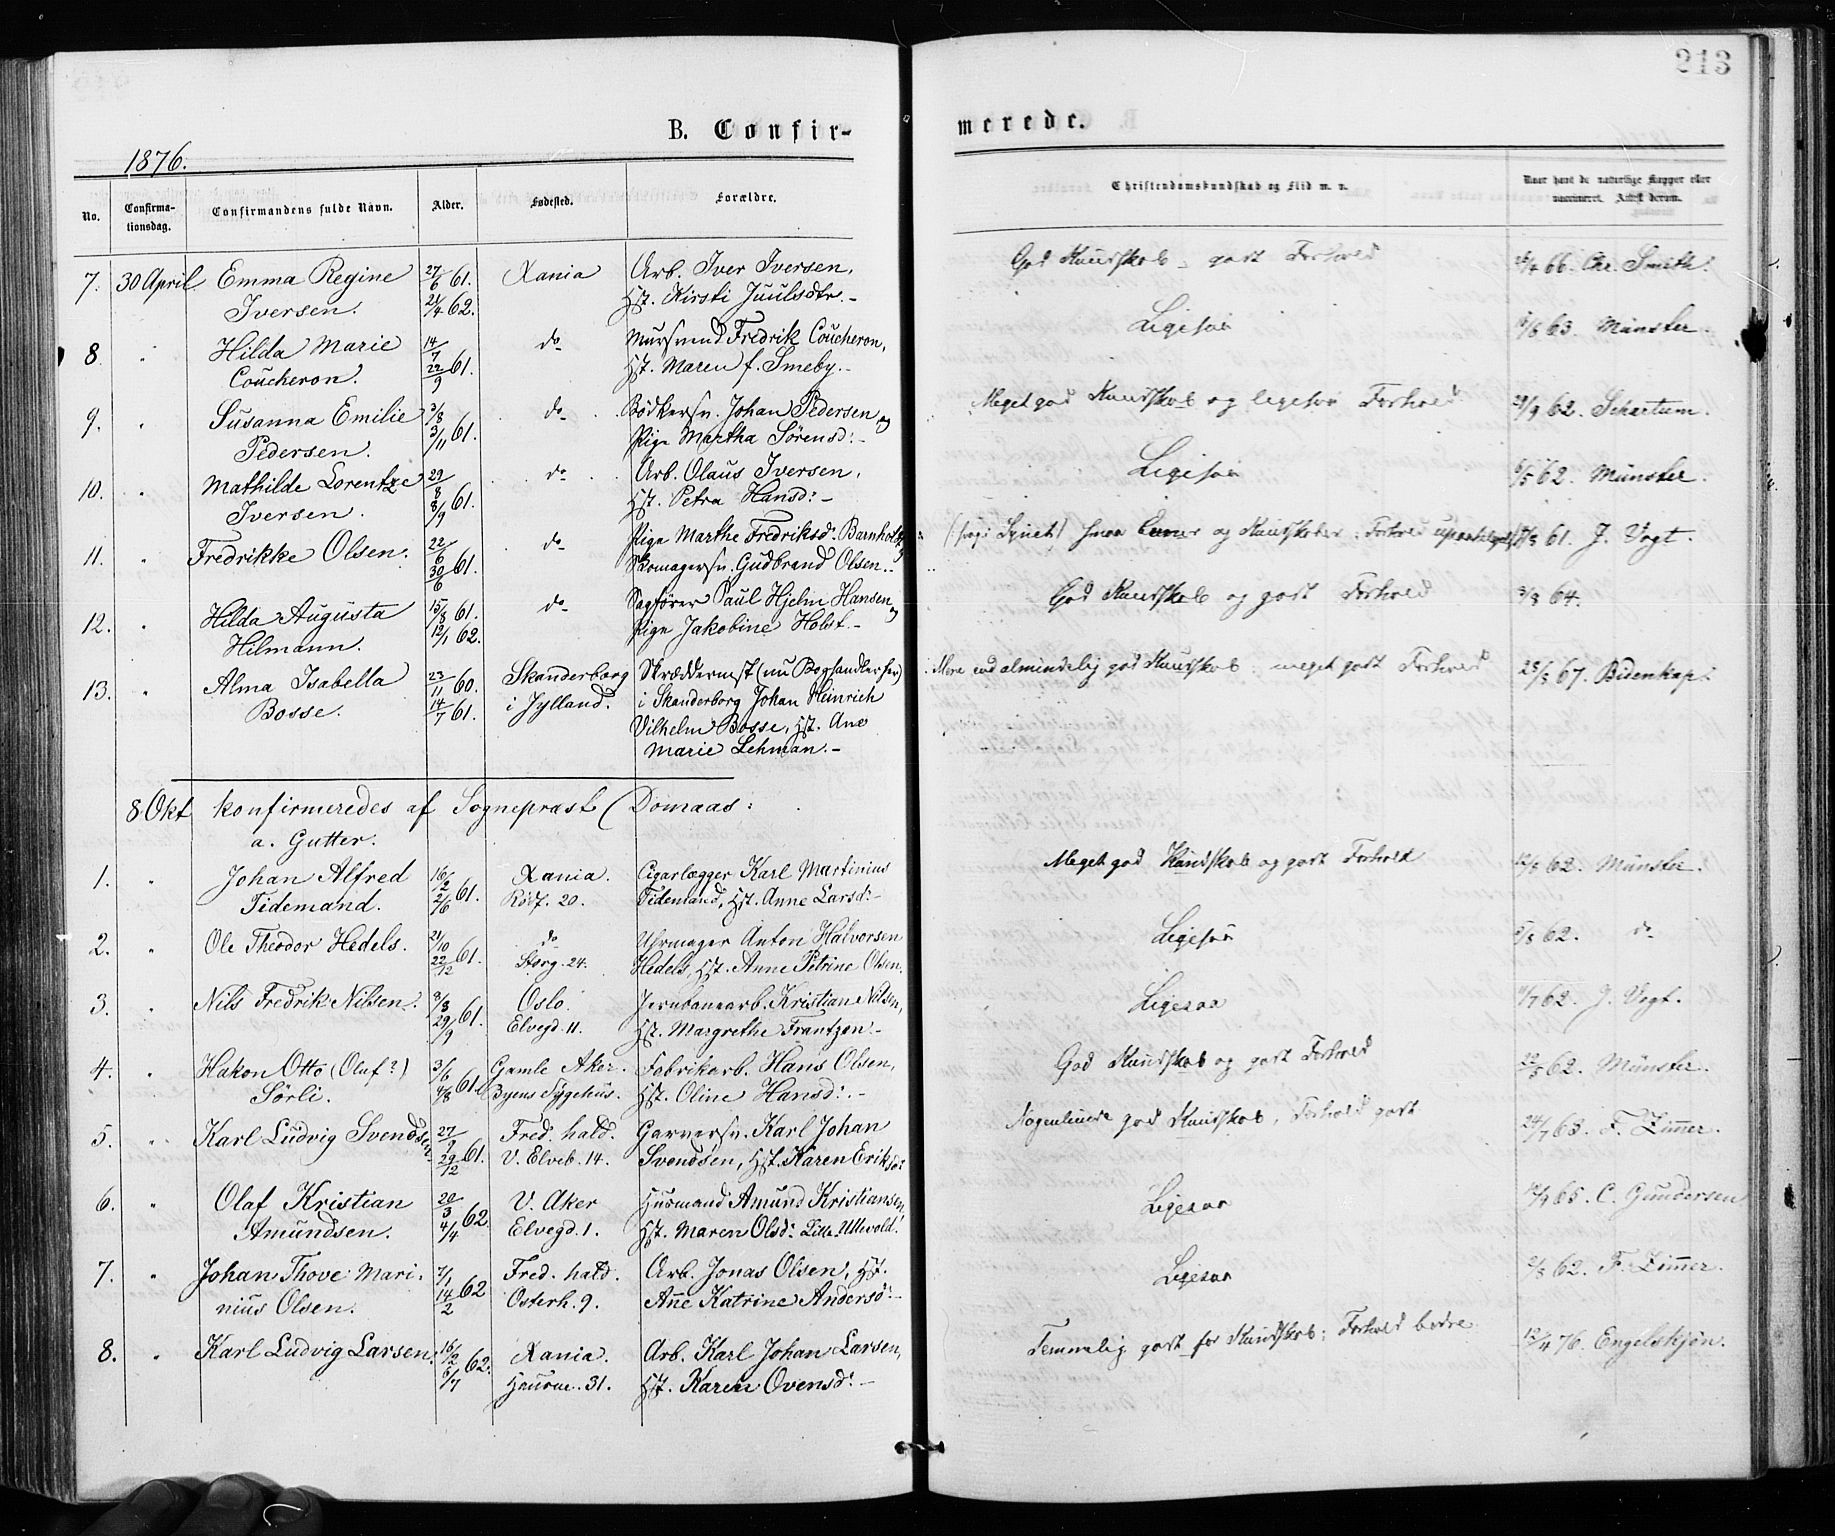 213
B. Confir-
merede.
1876.
No.
Confirma-
tionsdag.
Confirmandens fulde Navn.
Alder.
Fødested.
Forældre.
Christendomskundskab og Flid m. v.
Naar havt de naturlige Kopper eller
vaccineret. Attest derom.
7. 30 April Emma Regine 27/6 61. Xania Arb. Iver Iversen, God Kundskab godt Forhold 66. Chr. Smith.
Iversen. 21/4 62. Hst. Kirsti Juulsdtr.-
8. " Hilda Marie 14/7 do Mursvend Fredrik Coucheron, Ligesaa /8 63. Münster.
Coucheron. 22/9 61. Hst. Maren f. Smeby.-
9. " Susanna Emilie 3/8 do Bödkersv. Johan Pedersen og Meget god Kundskab og ligesaa Forhold 29/9 62. Schartum.
Pedersen. 3/11 61. Pige Martha Sörensd:-
10. " Mathilde Lorentze 29/8 do Arb. Olaus Iversen, Ligesaa 6/5 62. Münster.
Iversen. 8/9 61. Hst. Petra Hansd:-
11. " Fredrikke Olsen. 22/6 do Pige Marthe Fredriksd. Barnholt og smaa Evner og Kundskaber; Forhold /8 61. J. Vogt.
30/6 61. Skomagersv. Gudbrand Olsen.-
12. " Hilda Augusta 15/8 61. do Sagförer Paul Hjelm Hansen og God Kundskab og godt Forhold 3/8 64.
Hilmann. 12/1 62. Pige Jakobine Holst.-
13. " Alma Isabella 23/11 60. Skanderborg Skræddermst (nu Boghandler her) Mere end almindelig god Kundskab; meget godt Forhold 25/5 67. Bidenkap.
Bosse. 14/7 61. i Jylland. i Skanderborg Johan Heinrich
Vilhelm Bosse, Hst. Ane
Marie Lehman.-
8 Okt konfirmeredes af Sogneprast Domaas:
a. Gutter.
1. " Johan Alfred 16/2 Xania. Cigarlægger Karl Martinius Meget god Kundskab og godt Forhold 12/8 62. Münster.
Tidemand. 2/6 61. Rödf. 20. Tidemand, Hst. Anne Larsd:-
2. " Ole Theodor Hedels. 21/10 do Uhrmager Anton Halvorsen Ligesaa 5/8 62. do
22/12 61. Storg. 24. Hedels, Hst. Anne Petrine Olsen.
3. " Nils Fredrik Nilsen. 8/8 Oslo Jernbanearb. Kristian Nilsen, Ligesaa 11/7 62. J. Vogt.
29/9 61. Elvegd. 11. Hst. Margrethe Frantzen.-
4. " Hakon Otto (Oluf?) 3/6 Gamle Aker. Fabrikarb. Hans Olsen, God Kundskab og godt Forhold 22/5 62. Münster.
Sörli. 4/8 61. Byens Sygehus. Hst. Oline Hansd:.-
5. " Karl Ludvig Svendsen 27/9 Fred. hald. Garversv. Karl Johan Nogenlunde god Kundskab, Forhold godt 24/7 63. F. Zimmer.
29/12 61. V. Elveb. 14. Svendsen, Hst. Karen Eriksd:
6. " Olaf Kristian 20/3 V. Aker Husmand Amund Kristiansen, Ligesaa 65. C. Gundersen
Amundsen. 4/4 62. Elvegd. 1. Hst. Maren Olsd: Lille Ullevold.
7. " Johan Thove Mari- 7/1 Fred. hald. Arb. Jonas Olsen, Hst. Ligesaa /8 62. F. Zimmer.
nius Olsen. 14/2 62 Osterh. 9. Anne Katrine Andersd:-
8. " Karl Ludvig Larsen. 16/2 Xania. Arb. Karl Johan Larsen, Temmelig godt for Kundskab; Forhold bedre 12/4 76. Engelskjön.
6/7 62. Hausm. 31. Hst. Karen Ovensd:-